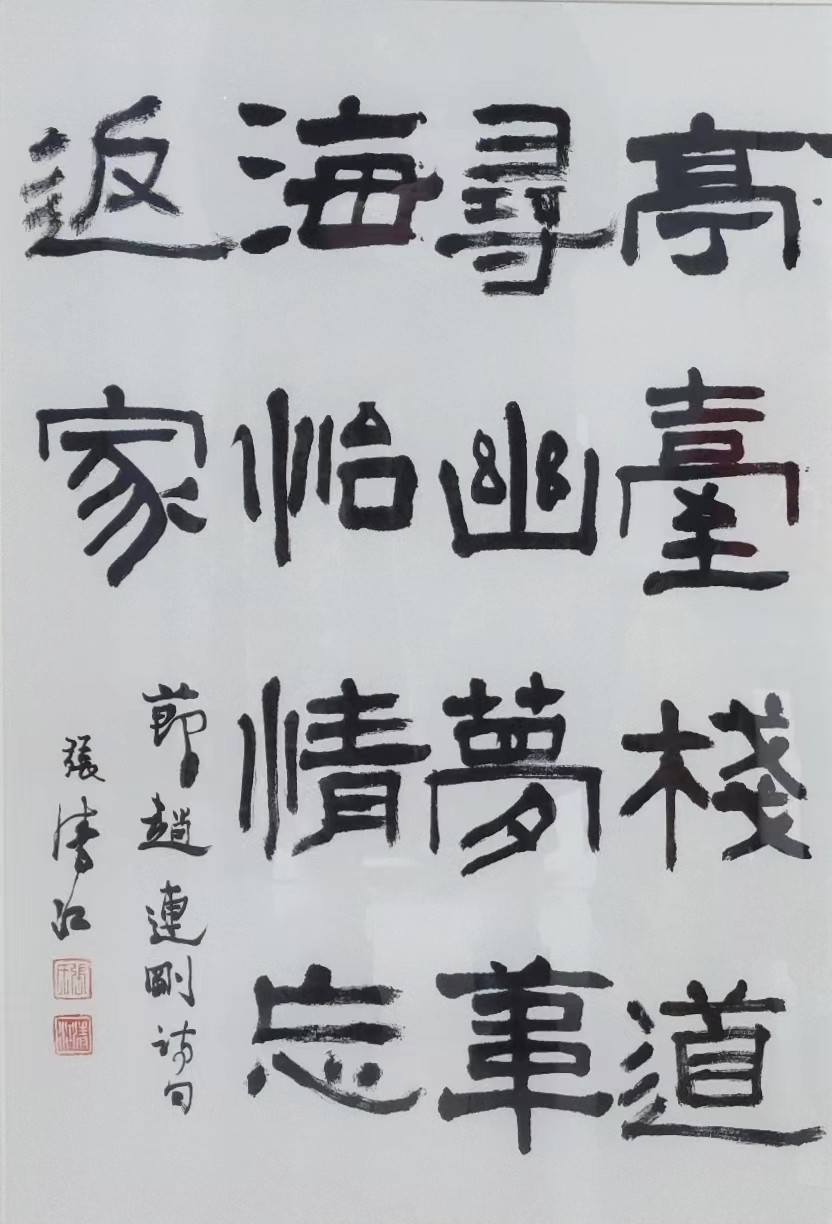 亭臺棧道
尋幽夢葦
海怡情忘
返家
節趙連剛詩句
張江